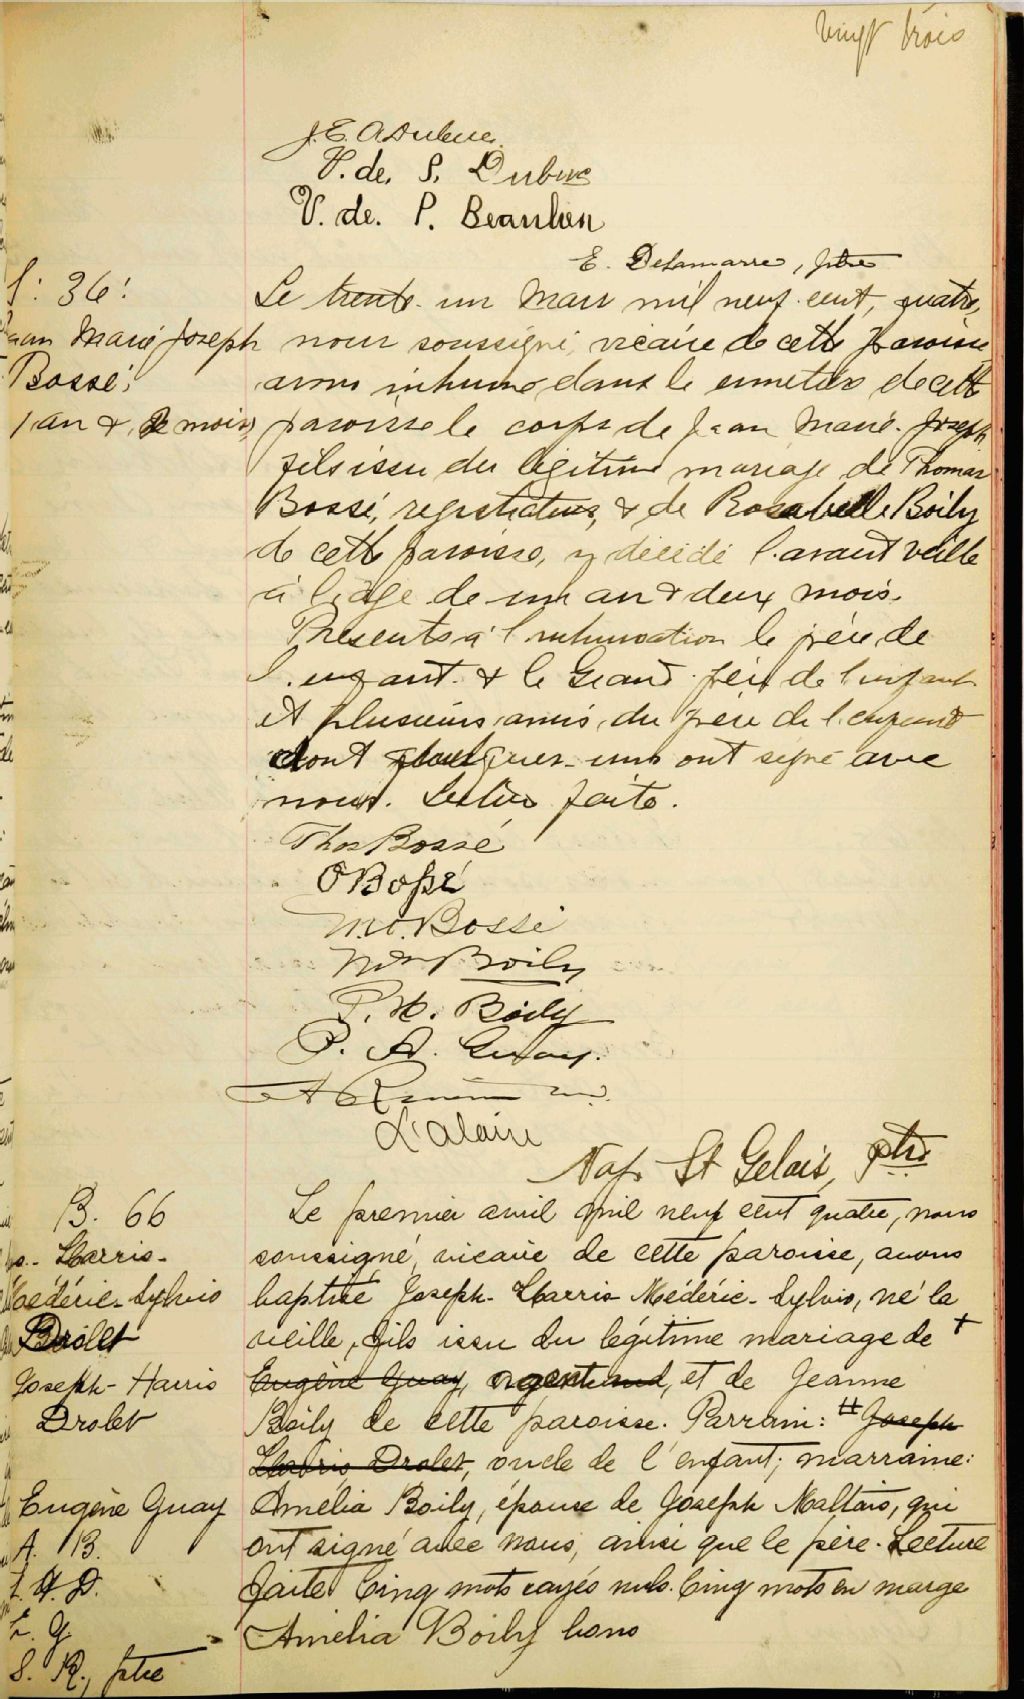 vingt trois
V. de. S. Dubuc
V. de. P. Beaulieu
E. Delamarre, ptre
S: 36:
Jean Marie Joseph
Bossé;
1 an & 2 mois
Le trente un Mars mil neuf cent, quatre,
nous soussigné, vicaire de cette paroisse
avons inhumé dans le cimetière de cette
paroisse le corps de Jean Marie-Joseph
fils issu du légitime mariage de Thomas
Bossé, registrateur, & de Rosabelle Boily
de cette paroisse, y décédé l'avant veille
à l'âge de un an & deux mois.
Présents à l'inhumation le père de
l'enfant & le Grand-père de l'enfant
et plusieurs amis du père de l'enfant
dont quelques-uns ont signé avec
nous. Lecture faite.
Thos Bossé
O Bossé
M.O. Bossé
Wm Boily
P. H. Boily
P. A. Guay.
Nap. St Gelais, ptre
B. 66
Jos.- Harris-
Médéric-Sylvio
Drolet
Joseph-Harris
Drolet
Eugène Guay
A. B.
J. H. D.
E. G
S. R., ptre
Le premier avril mil neuf cent quatre, nous
soussigné, vicaire de cette paroisse, avons
baptisé Joseph-Harris Médéric-Sylvio, né la
veille, fils issu du légitime mariage de +
Eugène Guay, et de Jeanne
Boily de cette paroisse. Parrain: # Joseph
Harris Drolet, oncle de l'enfant; marraine:
Amélia Boily, épouse de Joseph Maltais, qui
ont signé avec nous, ainsi que le père. Lecture
faite. Cinq mots rayés nuls. Cinq mots en marge
Amélia Boily bons